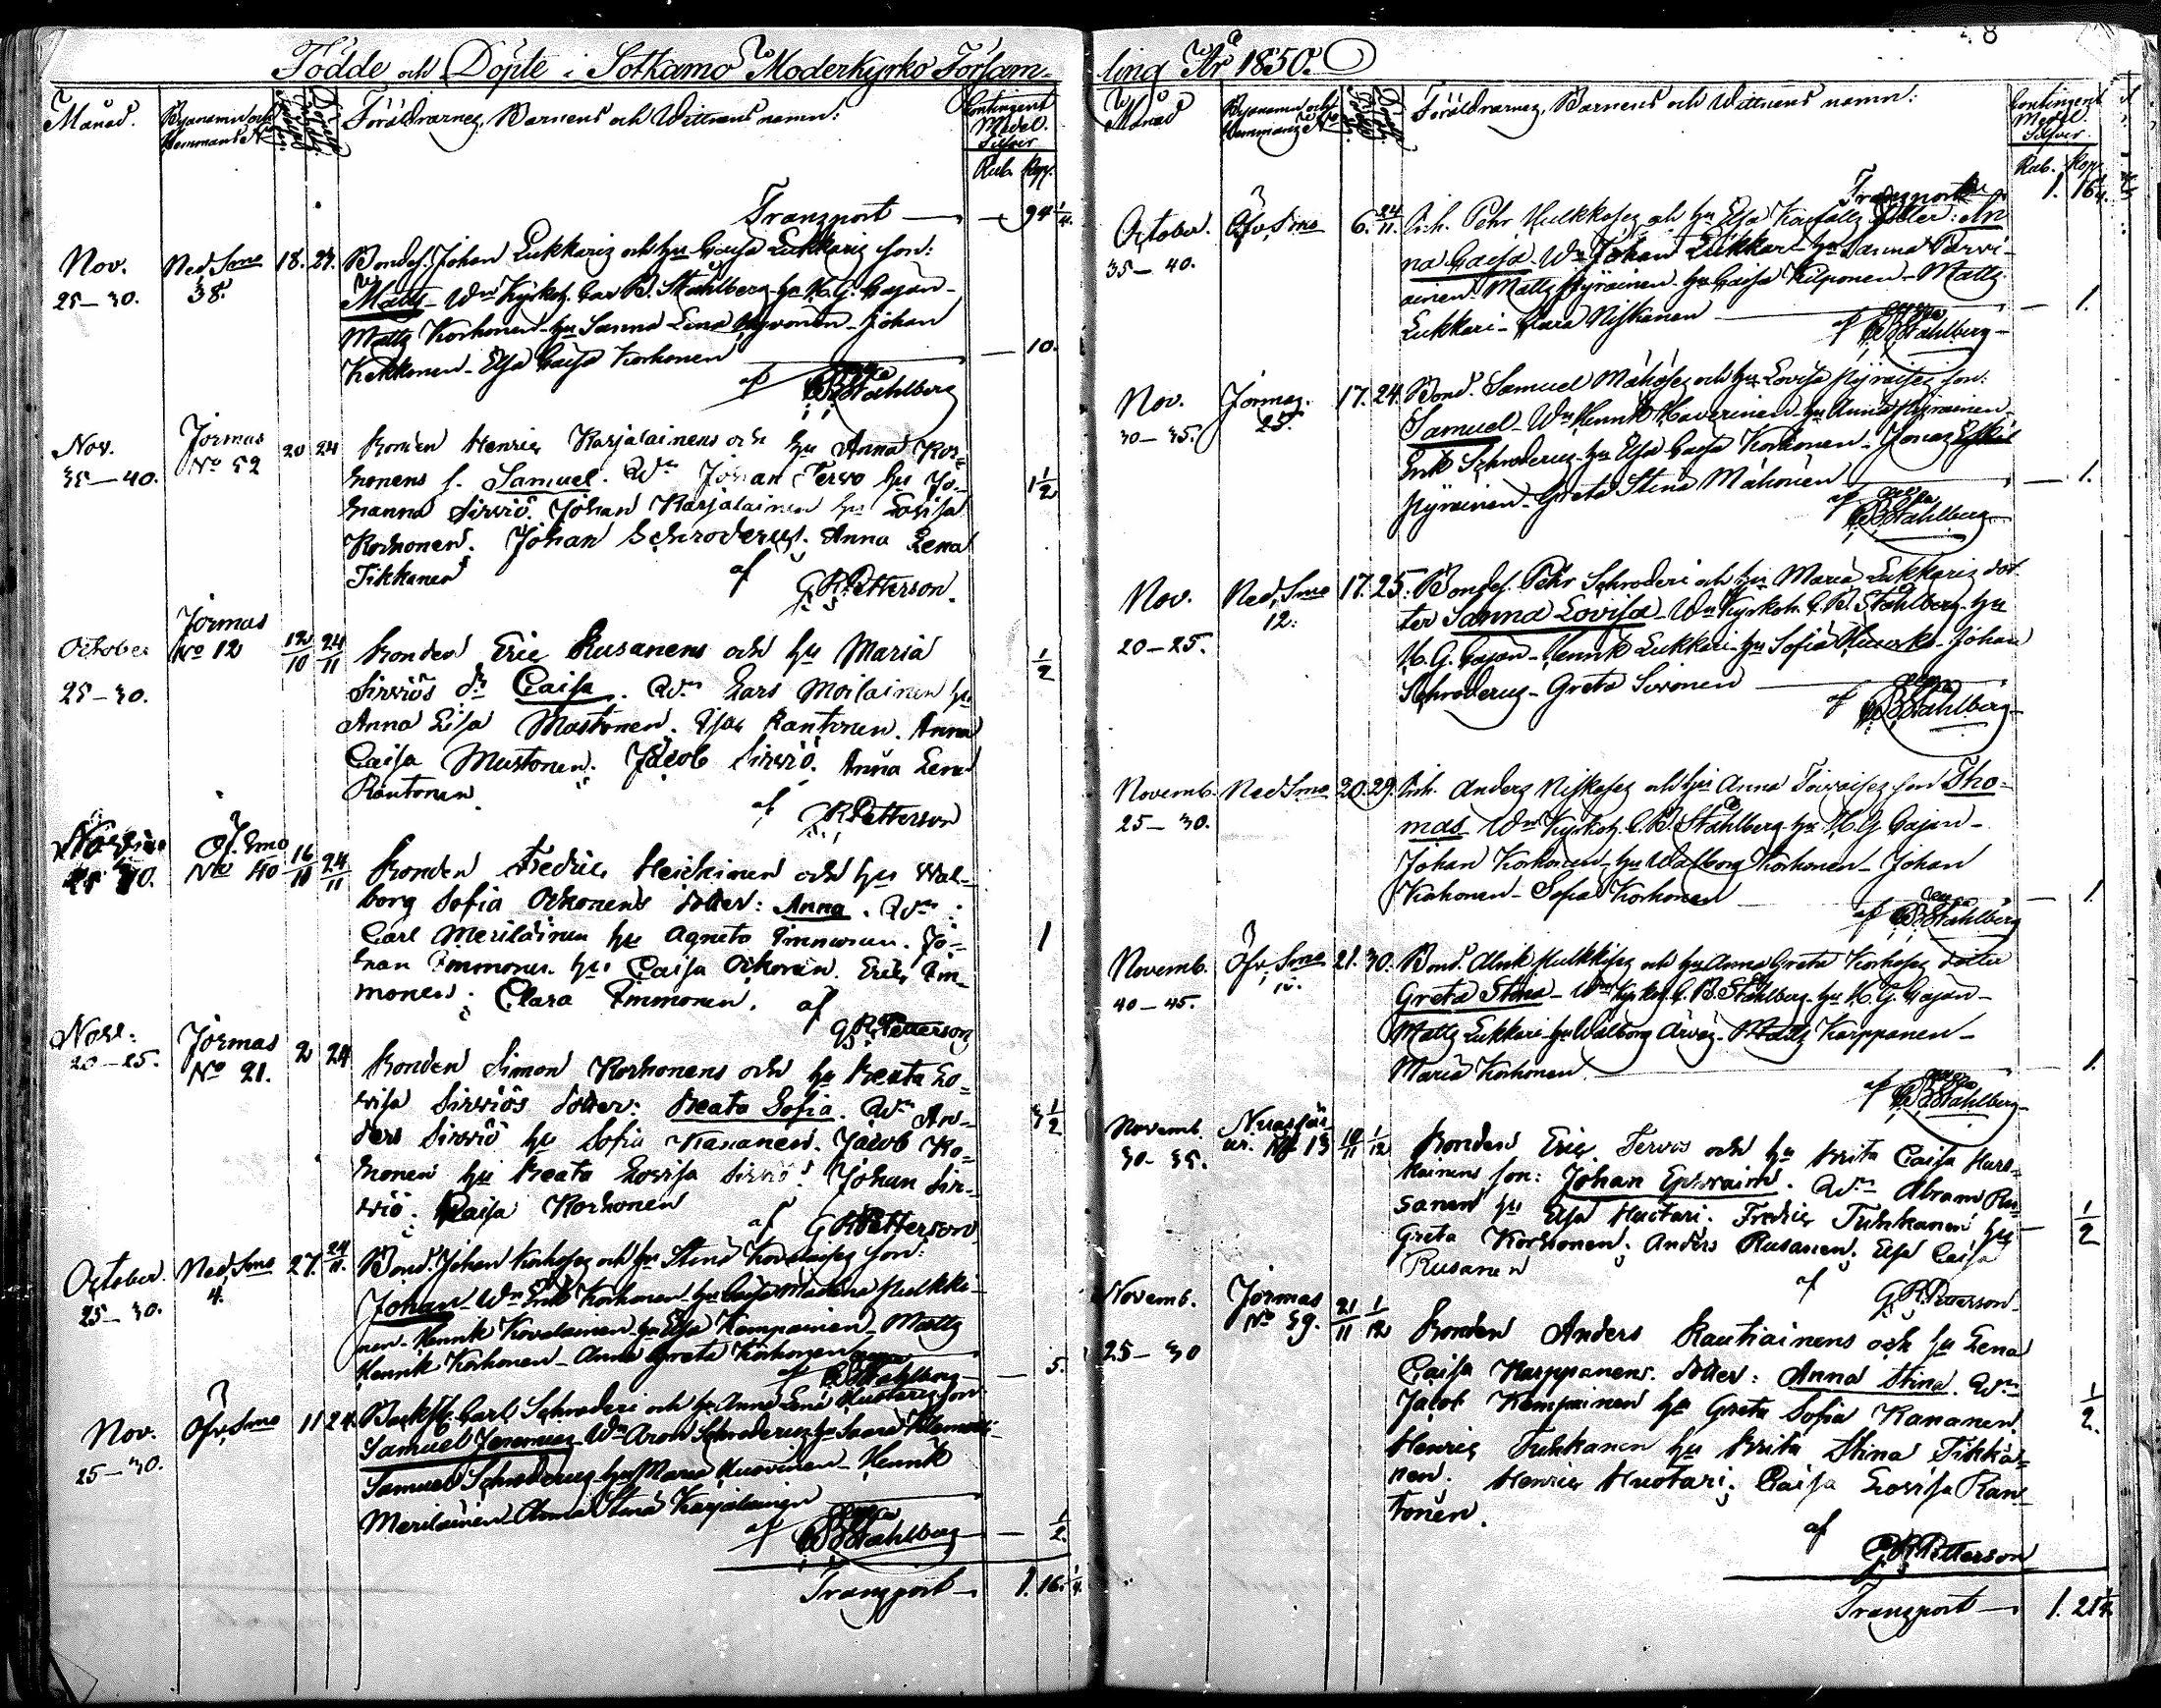 Födde och Döpte i Sotkamo Moderkyrko Församling År 1850.
Månad.
Byanamn och Hemmans No
Föräldrarnes, Barnens och Wittnens namn:
Contingent Medel. Silfver
Rub. Kop.
Transport — 94 1/4
Nov.
25-30.
Ned. Smo
38.
18. 24.
Bondes. Johan Lukkaris och hu Caisa Lukkaris son:
Matts - Wn Kyrkoh. Car B. Ståhlberg hu H. G. Cajan-
Matts Korhonen - hu Sanna Lena - Johan
Kekkonen - Elsa Caisa Korhonen
10.
af Ståhlberg
Nov.
35-40.
Jormas
No 52
20 24
Bonden Henric Karjalainens och hu Anna Kor-
honens s. Samuel. Wn Johan Tervo hu Jo-
hanna Sirviö. Johan Karjalainen hu Lovisa
Korhonen. Johan Schroderus. Anna Lena
Tikkanen
af G R Petterson.
1 1/2
October
25-30.
Jormas
No 12
12/10 24/11
Bonden Eric Rusanens och hu Maria
Sirviös dr Caisa. Wn Lars Moilainen hu
Anna Lisa Mustonen. Isac Rantonen. Anna
Caisa Mustonen. Jacob Sirviö. Anna Lena
Rantonen
af G R Petterson
1/2
Öf. Smo
No 40
16/10 24/11
Bonden Fredric Heickinen och hu Wal-
borg Sofia Oikonens dotter: Anna. Wn:
Carl Meriläinen hu Agneta Immonen. Jo-
han Immonen. hu Caisa Oikonen. Eric Im-
monen. Clara Immonen. af
G R Petterson
1
Nov:
20-25.
Jormas
No 21.
2 24
Bonden Simon Korhonens och hu Beata Lo-
visa Sirviös dotter: Beata Sofia. Wn An-
ders Sirviö hu Sofia Kananen. Jacob Ko-
honen hu Beata Lovisa Sirviö. Johan Sir-
viö. Caisa Korhonen
af G R Petterson
3 1/2
October.
25-30.
Ned. Smo
4.
27. 24/11.
Bond. Johan Korhoses och hu Stina Kovalaises son:
Johan - Wn Erik Korhonen - hu Caisa Madlena Pulkki-
nen - Henrik Kovalainen - hu Elsa Kempainen - Matts
Henrik Korhonen - Anna Greta Korhonen
af Ståhlberg
5.
Nov.
25-30.
Öfv. Smo
11 24.
Carl Schroderi och hu Anna Lena Huotaris son
Samuel Jeremias - Wn Aron Schroderus hu Saara
Samuel Schroderus - hu Maria Huovinen - Henrik
Meriläinen - Anna Stina Karjalainen
af Ståhlberg
1/2
Transport — 1. 16 1/4
Månad
Byanamn och Hemmans No
Föräldrarnes, Barnens och Wittnens namn:
Contingent Medel. Silfver.
Rub. Kop.
Transport 1. 16 1/4
October.
35-40.
Öfv. Smo
6. 24/11.
Inh. Pehr Pulkkoses och hu Elsa dotter: An
na Caisa - Wn Johan Lukkari - hu Sanna Parvi-
ainen. Matts Pyrainen - hu Caisa Kilponen - Matts
Lukkari - Clara Niskanen
1.
af Ståhlberg
Nov.
30-35.
Jormas.
25.
17. 24.
Bond. Samuel Mähöses och hu Lovisa Pyraises son:
Samuel - Wn Henrik Haverinen - hu Anna Pyrainen
Erik Schroderus - hu Elsa Caisa Korhonen - Jonas
Pyrainen - Greta Stina Mähönen
1.
af Ståhlberg
Nov.
20-25.
Ned. Smo
12.
17. 25.
Bondes. Pehr Schroderi och hu Maria Lukkaris dot-
ter Sanna Lovisa - Wn Kyrkoh. C. B. Ståhlberg - hu
H. G. Cajan - Henrik Lukkari - hu Sofia - Johan
Schroderus - Greta Sivonen
af Ståhlberg
Novemb.
25-30.
Ned. Smo
20. 29.
Inh. Anders Niskases och hu Anna son Tho-
mas - Wn Kyrkoh. C. B. Ståhlberg - hu H. G Cajan -
Johan Korhonen - hu Walborg Korhonen - Johan
Korhonen - Sofia Korhonen
1.
af Ståhlberg
Novemb.
40-45.
Öfv. Smo
21. 30.
Bond. Alrik Pulkkises och hu Anna Greta Korhoses dotter
Greta Stina - Wn Kyrkoh. C. B. Ståhlberg - hu H. G. Cajan -
Matts Lukkari - hu Walborg - Matts Karppanen -
Maria Korhonen.
1.
af Ståhlberg
Novemb.
30-35.
No 13
10/11 1/12
Bonden Eric Tervos och hu Brita Caisa Hurs-
kainens son: Johan Ephraim. Wn Abram Ru-
sanen hu Elsa Huotari. Fredric Tuhkanen hu
Greta Korhonen. Anders Rusanen. Elsa Caisa
Rusanen
af G R Petterson
1/2
Novemb.
25-30
Jormas
No 59.
21/11 1/12
Bonden Anders Rautiainens och hu Lena
Caisa Karppanens. dotter: Anna Stina. Wn
Jacob Kempainen hu Greta Sofia Kananen.
Henric Tuhkanen hu Brita Stina Tikka-
nen. Henric Huotari. Caisa Lovisa Ran-
tonen.
af
G R Petterson
1/2.
Transport — 1. 21 1/4